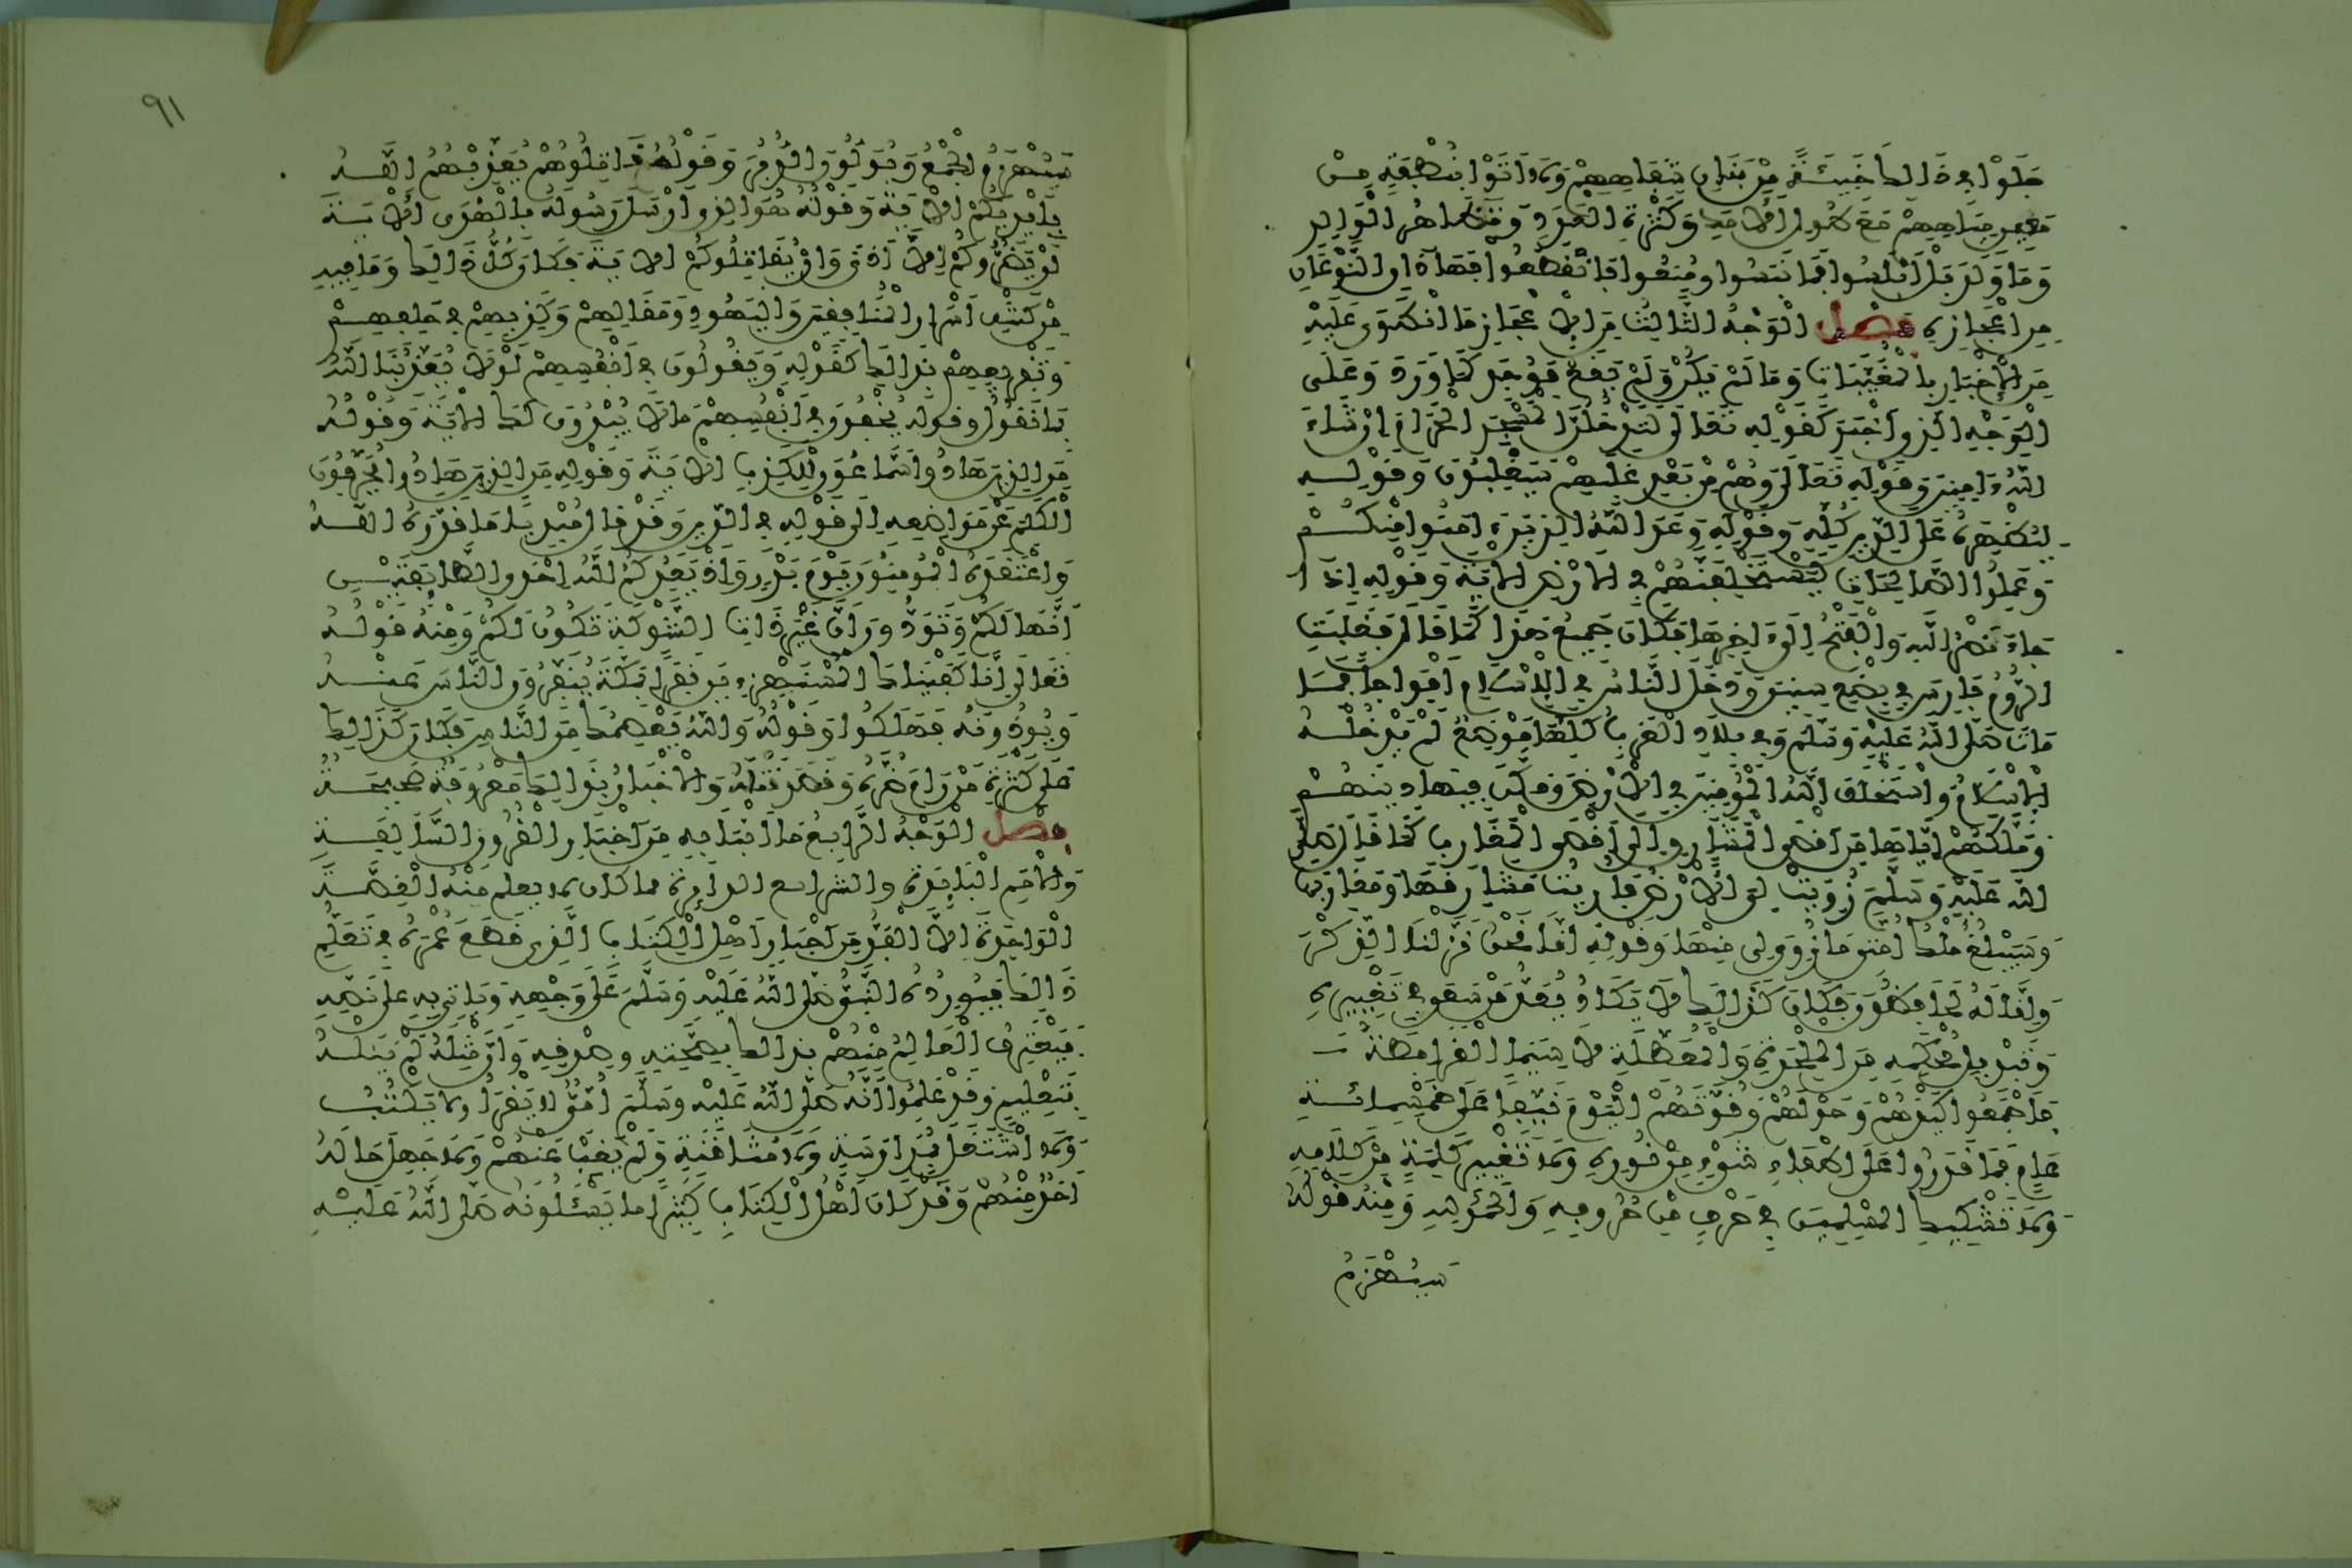 جلوا في ذالك خبيئة من بنات شفاههم ولا أتوا بنطفة من
معين مياههم مع طول الأمد وكثرة العدد وتظاهر الوالد
وما ولد بل أبلسوا فما نبسوا ومنعوا فانقطعوا فهاذان النوعان
من إعجازه فصل الوجه الثالث من الإعجاز ما انطوى عليه
من الإخبار بالمغيبات وما لم يكن ولم يقع فوجد كما ورد وعلى
الوجه الذي أخبر كقوله تعالى لتدخلن المسجد الحرام إن شاء
الله ءامنين وقوله تعالى وهم من بعد غلبهم سيغلبون وقوله
ليظهره على الدين كله وقوله وعد الله الذين ءامنوا منكم
وعملوا الصالحات ليستخلفنهم في الارض الاية وقوله إذا
جاء نصر الله والفتح إلى ءاخرها فكان جميع هذا كما قال فغلبت
الروم فارس في بضع سنين ودخل الناس في الإسلام أفواجا فما
مات صلى الله عليه وسلم وفي بلاد العرب كلها موضع لم يدخله
الإسلام واستخلف الله المؤمنين في الأرض ومكن فيها دينهم
وملكهم إياها من أقصى المشارق إلى أقصى المغارب كما قال صلى
الله عليه وسلم زويت لي الأرض فأريت مشارقها ومغاربها
وسيبلغ ملك أمتي ما زوي لي منها وقوله إنا نحن نزلنا الذكر
وإنا له لحافظون فكان كذالك لا يكاد يعد من سعى في تغييره
وتبديل محكمه من الملحدة والمعطلة لا سيما القرامطة
فأجمعوا كيدهم وحولهم وقوتهم اليوم نيفا على خمسمائة
عام فما قدروا على إطفاء شيء من نوره ولا تغيير كلمة من كلامه
ولا تشكيك المسلمين في حرف من حروفه والحمد لله ومنه قوله
سيهزم
٩١
سيهزم الجمع ويولون الدبر وقوله قاتلوهم يعذبهم الله
بأيديكم الأية وقوله هو الذي أرسل رسوله بالهدى الأية
لن يضروكم إلا أذى وإن يقاتلوكم الأية فكان كل ذالك وما فيه
من كشف أسرار المنافقين واليهود ومقالهم وكذبهم في حلفهم
وتقريعهم بذالك كقوله ويقولون في أنفسهم لولا يعذبنا الله
بما نقول وقوله يخفون في أنفسهم ما لا يبدون لك الاية وقوله
من الذين هادوا سماعون للكذب الأية وقوله من الذين هادوا يحرفون
الكلم عن مواضعه إلى قوله في الدين وقد قال مبديا ما قدره الله
واعتقده المؤمنون يوم بدر وإذ يعدكم الله إحدى الطائفتين
أنها لكم وتودون أن غير ذات الشوكة تكون لكم ومنه قوله
تعالى إنا كفيناك المستهزءين نفر بمكة ينفرون الناس عنه
ويؤذونه فهلكوا وقوله والله يعصمك من الناس فكان كذالك
على كثرة من رام ضره وقصد قتله والأخبار بذالك معروفة صحيحة
فصل الوجه الرابع ما أنبأ به من أخبار القرون السالفة
والأمم البائدة والشرائع الداثرة مما كان لا يعلم منه القصة
الواحدة إلا الفذ من أحبار أهل الكتاب الذي قطع عمره في تعلم
ذالك فيورده النبي صلى الله عليه وسلم على وجهه ويأتي به على نصه
فيعترف العالم منهم بذالك بصحته وصدقه وأن مثله لم ينله
بتعليم وقد علموا أنه صلى الله عليه وسلم أمي لا يقرأ ولا يكتب
ولا اشتغل بمدارسة ولا مثافنة ولم يغب عنهم ولا جهل حاله
أحد منهم وقد كان أهل الكتاب كثيرا ما يسئلونه صلى الله عليه